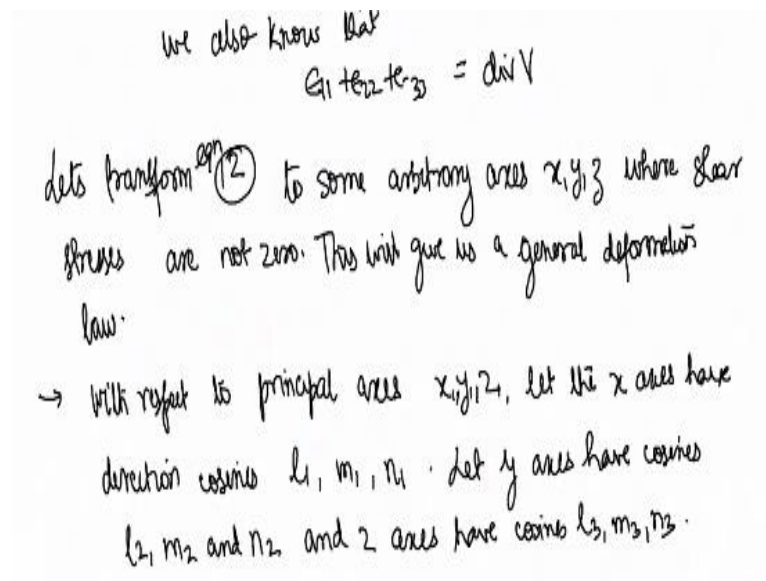 we also know that
ϵ11 + ϵ22 + ϵ33 = div V
Lets transform eqn (2) to some arbitrary axes x, y, z where shear
stresses are not zero. This will give us a general deformation
law.
→ With respect to principal axes x1, y1, z1, let the x axes have
direction cosines l1, m1, n1. Let y axes have cosines
l2, m2 and n2 and z axes have cosines l3, m3, n3.